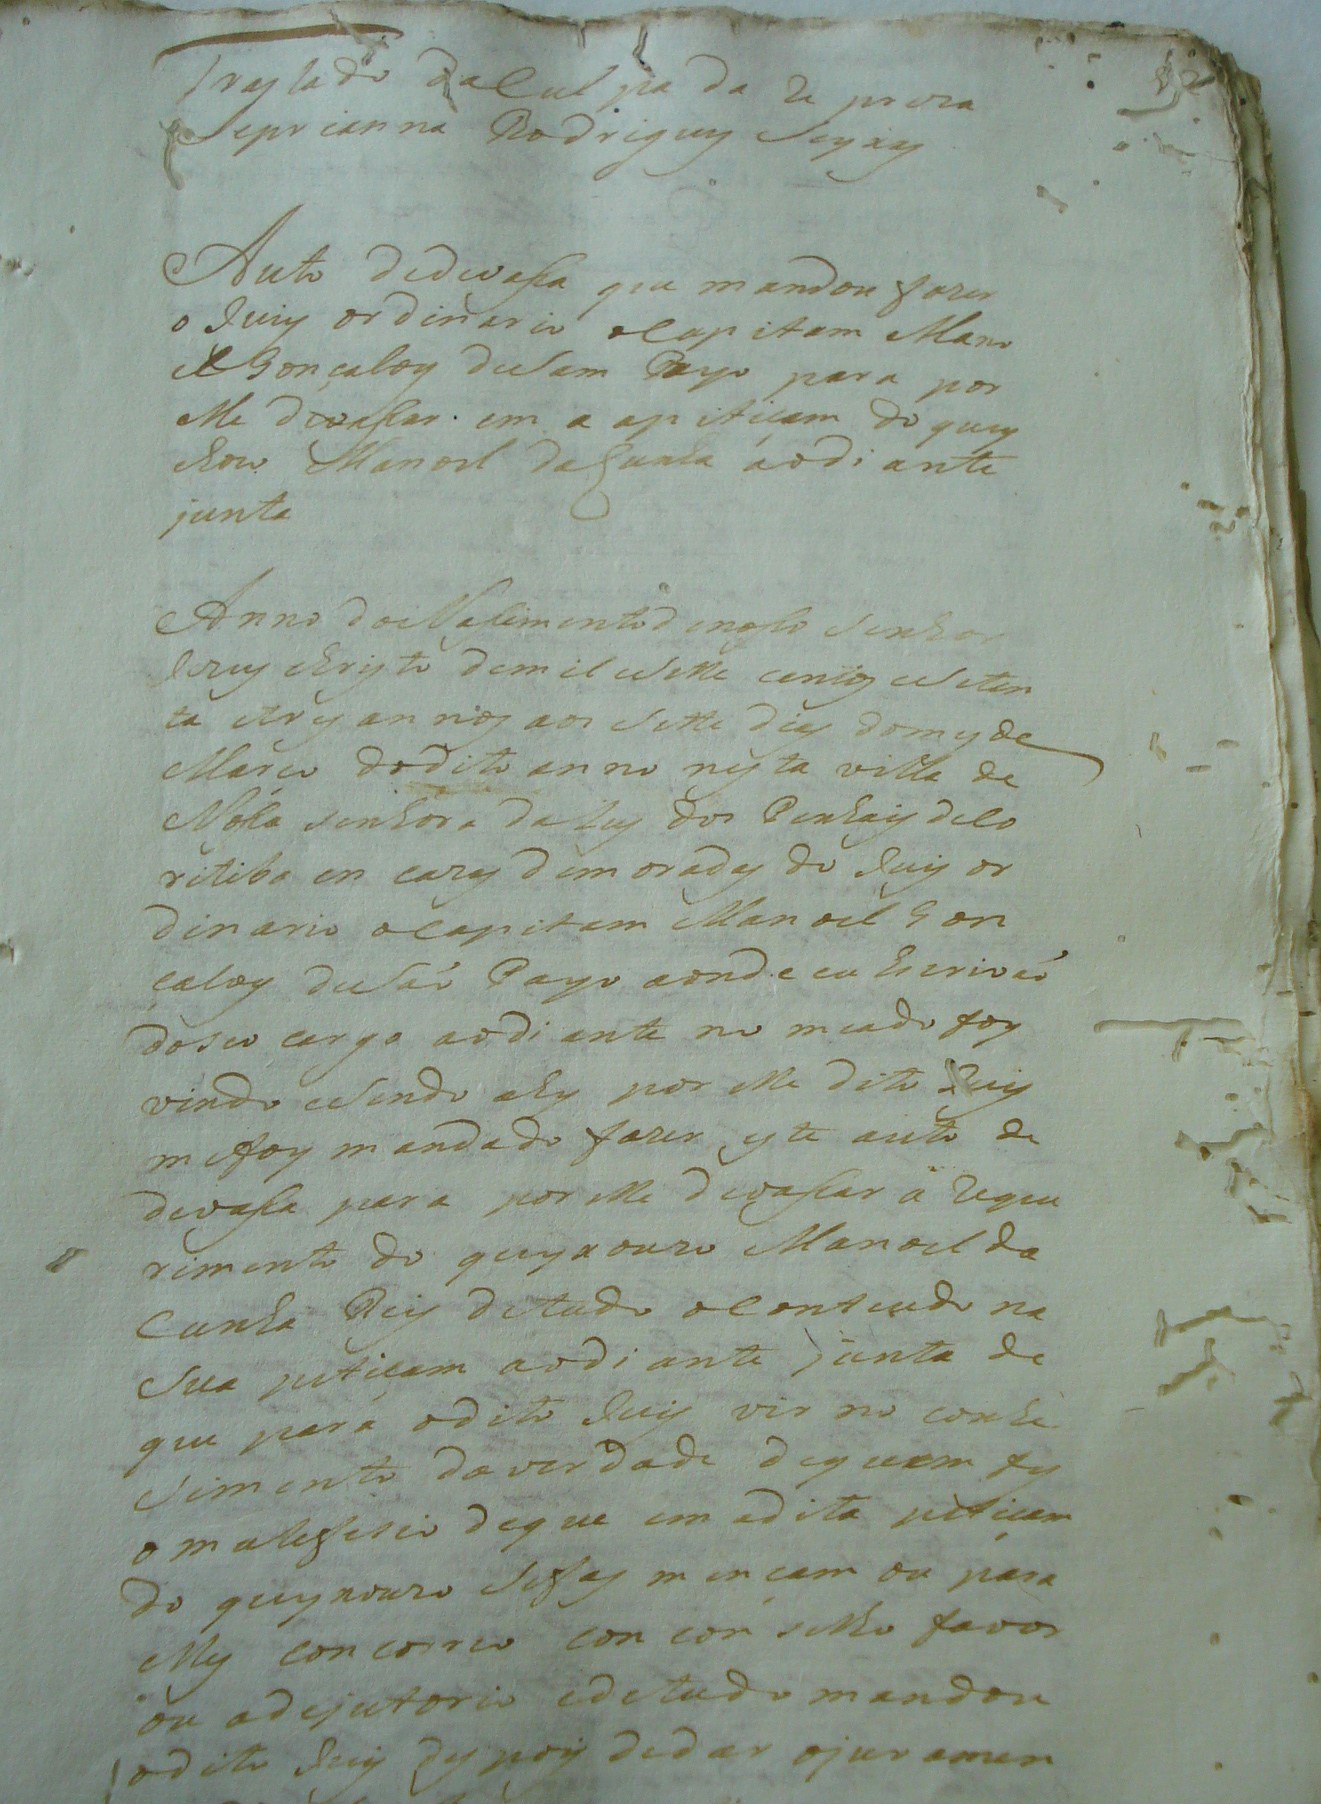 Traslado da Culpa da Re preza
Seprianna Rodriguez Seyxas
Auto dedevassa que mandou fazer
o Juiz ordinario o Capitam Mano
el Gonçalvez deSam Payo para por
elle devassar em a apitiçam do quey
xozo Manoel daCunha aodiante
junta
Anno do Nassimento denosso senhor
Jezus christo demil esette centos eseten
ta etres annos aos sette dias domes de
Março dodito anno nesta villa de
Nossa senhora daLuz dos Penhais deCo
ritiba en cazas demoradas do Juiz or
dinario o Capitam Manoel Gon
çalves deSáo Payo aonde eu Escriváo
doseu cargo aodiante no meado foy
vindo esendo ahy por elle dito Juiz
mefoy mandado fazer este auto de
devassa para por elle devassar a Reque
rimento do queyxouzo Manoel da
Cunha Reis detudo oContheudo na
sua petiçam aodiante junta de
que para odito Juiz vir no conhe
simento daverdade dequem fes
o malefisio deque em adita petiçam
do queyxouzo sefas mençam ou para
elles concorreo con conselho favor
ou adejutorio edetudo mandou
odito Juiz despois dedar ojuramen